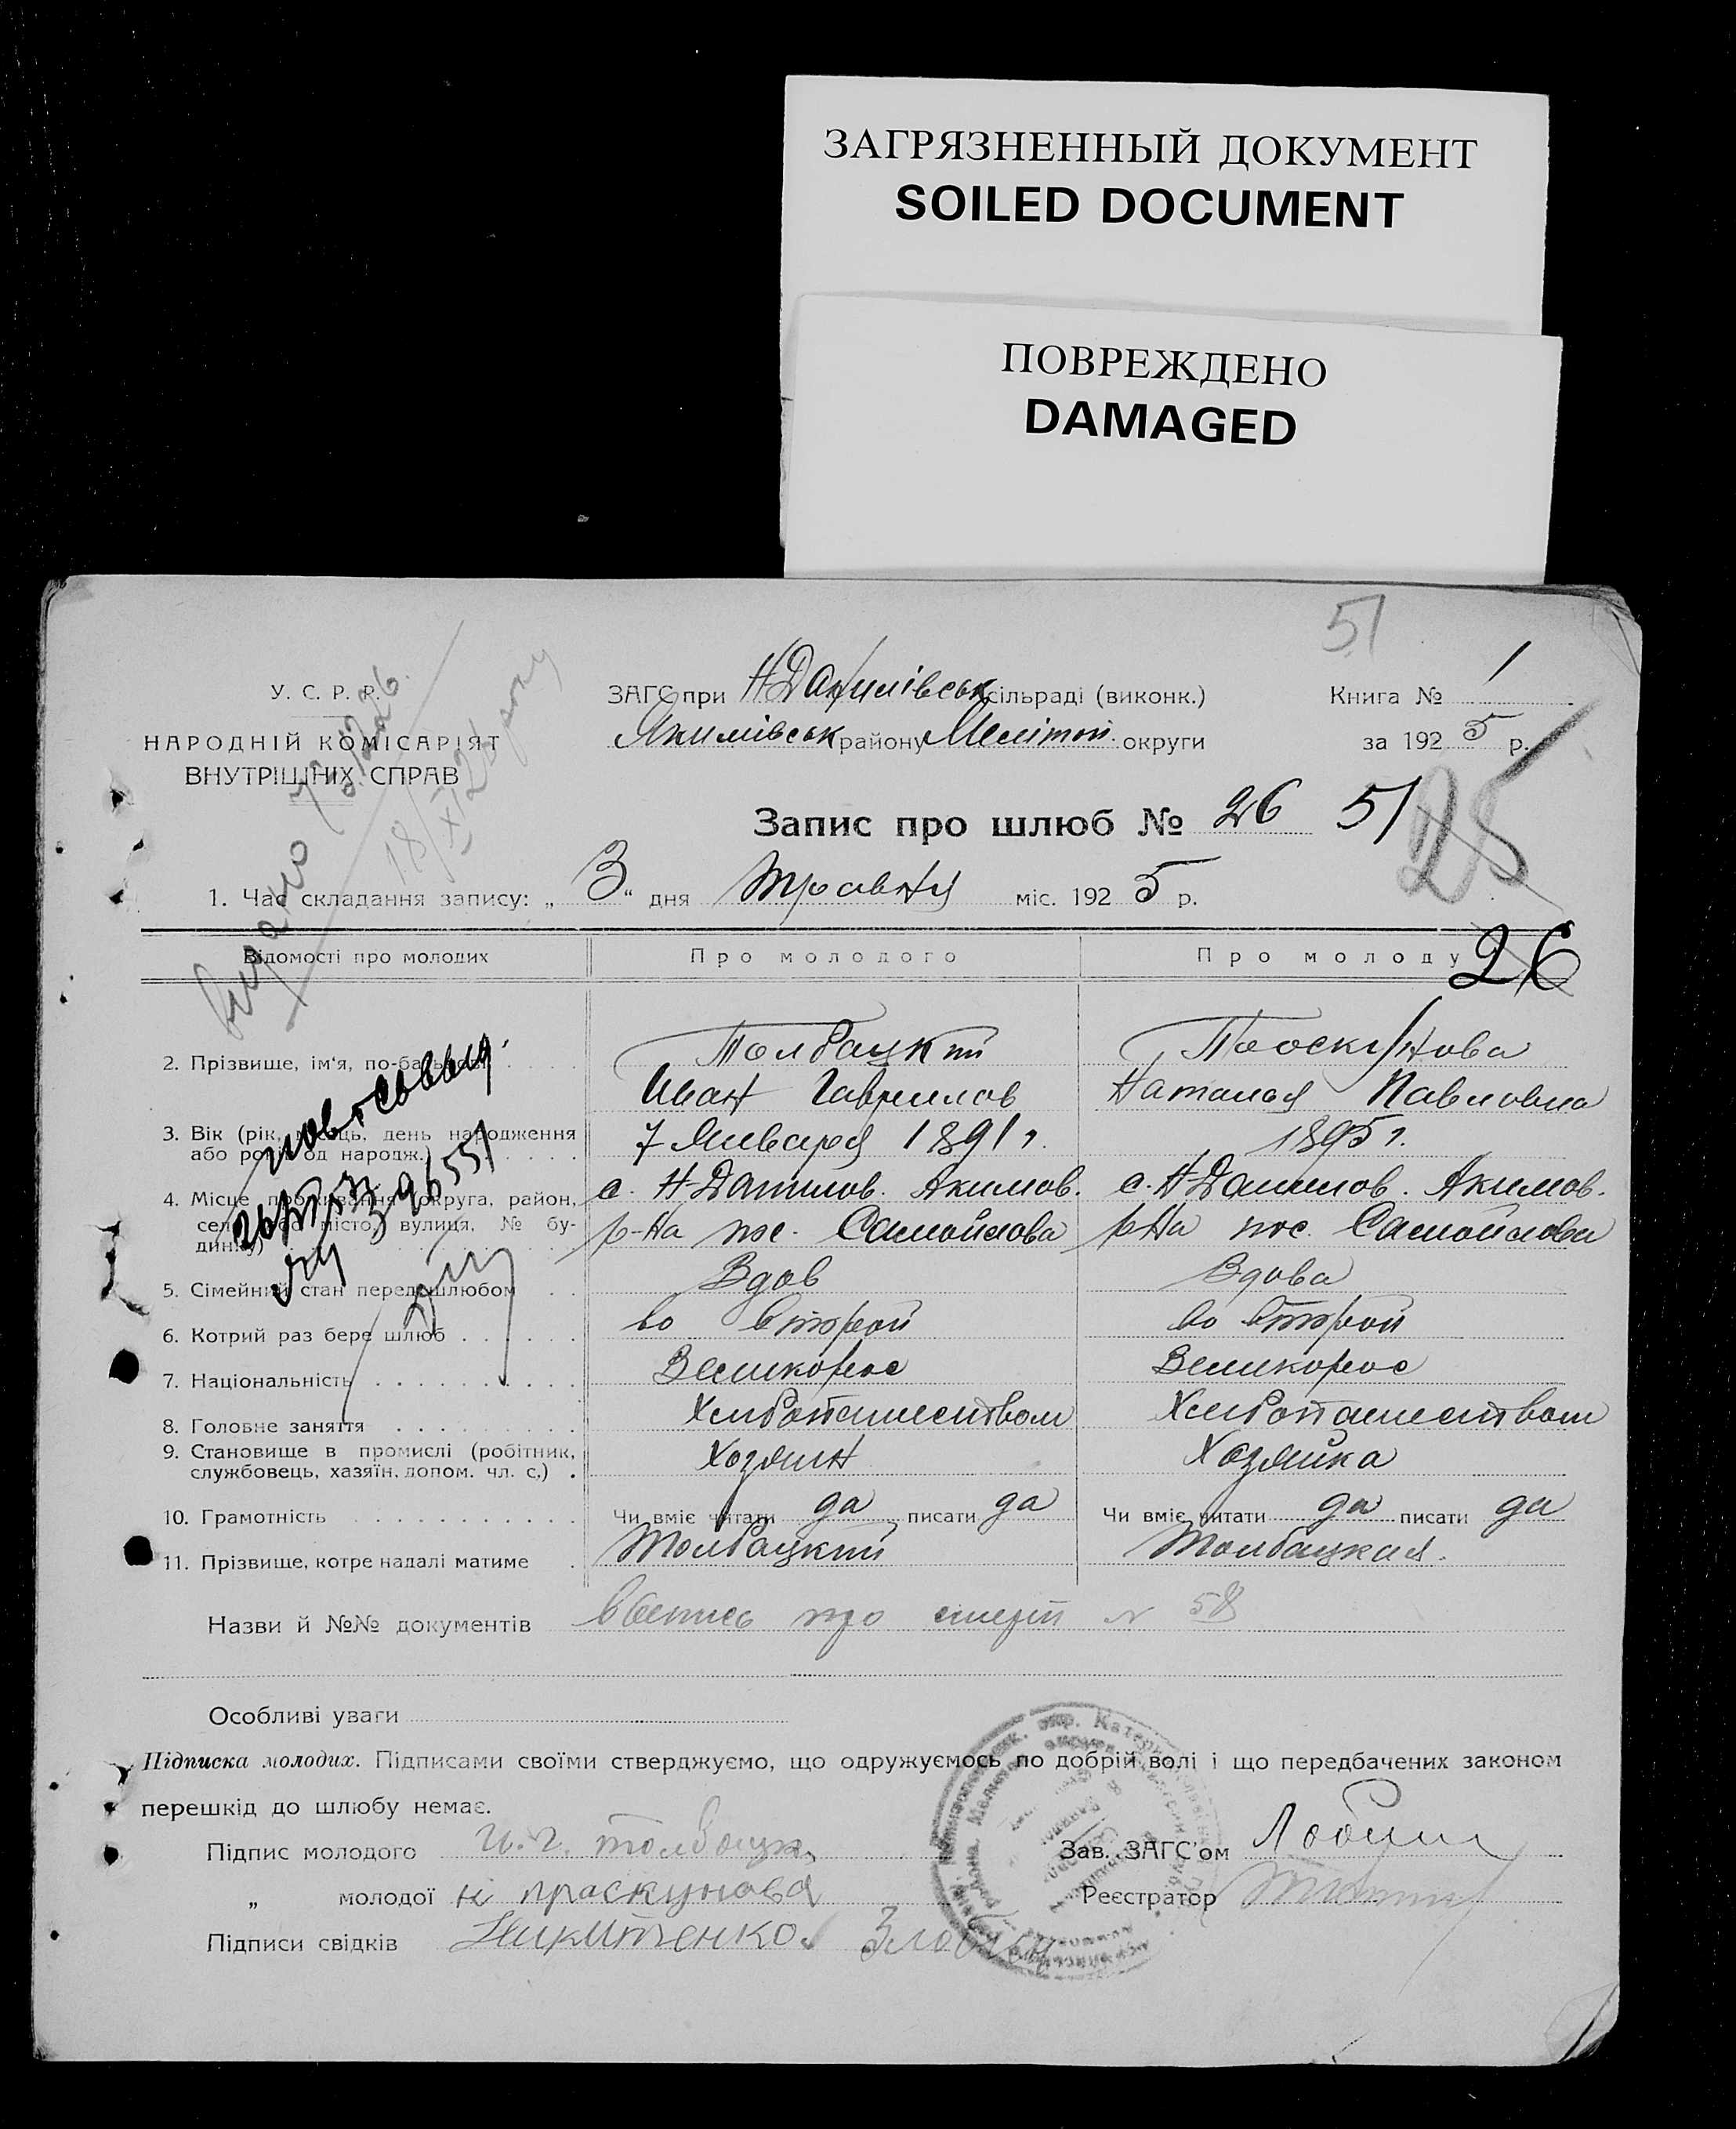 ЗАГРЯЗНЕННЫЙ ДОКУМЕНТ
SOILED DOCUMENT
ПОВРЕЖДЕНО
DAMAGED
51
У. С. Р. Р.
НАРОДНІЙ КОМІСАРІЯТ
ВНУТРІШНІХ СПРАВ
ЗАГС при Н Данилівськ сільраді (виконк.)
Якимівськ району Мелітоп. округи
Книга № 1
за 1925 р.
Запис про шлюб № 26 51
25
1. Час складання запису: „3“ дня травня міс. 1925 р.
Відомості про молодих Про молодого Про молоду
26
2. Прізвище, ім'я, по-батькові Толбацкий
Иван Гаврилов Наталья Павловна
3. Вік (рік, місяць, день народження або років од народж.) 7 Января 1891 г. 1895 г.
4. Місце проживання (округа, район, село або місто, вулиця, № будинку) с. Н-Данилов. Акимов. с. Н Данилов. Акимов.
р-на пос. Самойлова р на пос. Самойлова
5. Сімейний стан перед шлюбом Вдов Вдова
6. Котрий раз бере шлюб во второй во второй
7. Національність Великорос Великорос
8. Головне заняття Хлибопашеством Хлибопашеством
9. Становище в промислі (робітник, службовець, хазяїн, допом. чл. с.) Хозяин Хозяйка
10. Грамотність Чи вміє читати да писати да Чи вміє читати да писати да
11. Прізвище, котре надалі матиме Толбацкий Толбацкая.
Назви й №№ документів про смерт № 58
Особливі уваги
Підписка молодих. Підписами своїми стверджуємо, що одружуємось по добрій волі і що передбачених законом
перешкід до шлюбу немає.
Підпис молодого И. Г. толбацк
Зав. ЗАГС'ом
„ молодої Н праскунова
Реєстратор
Підписи свідків Никитенко.